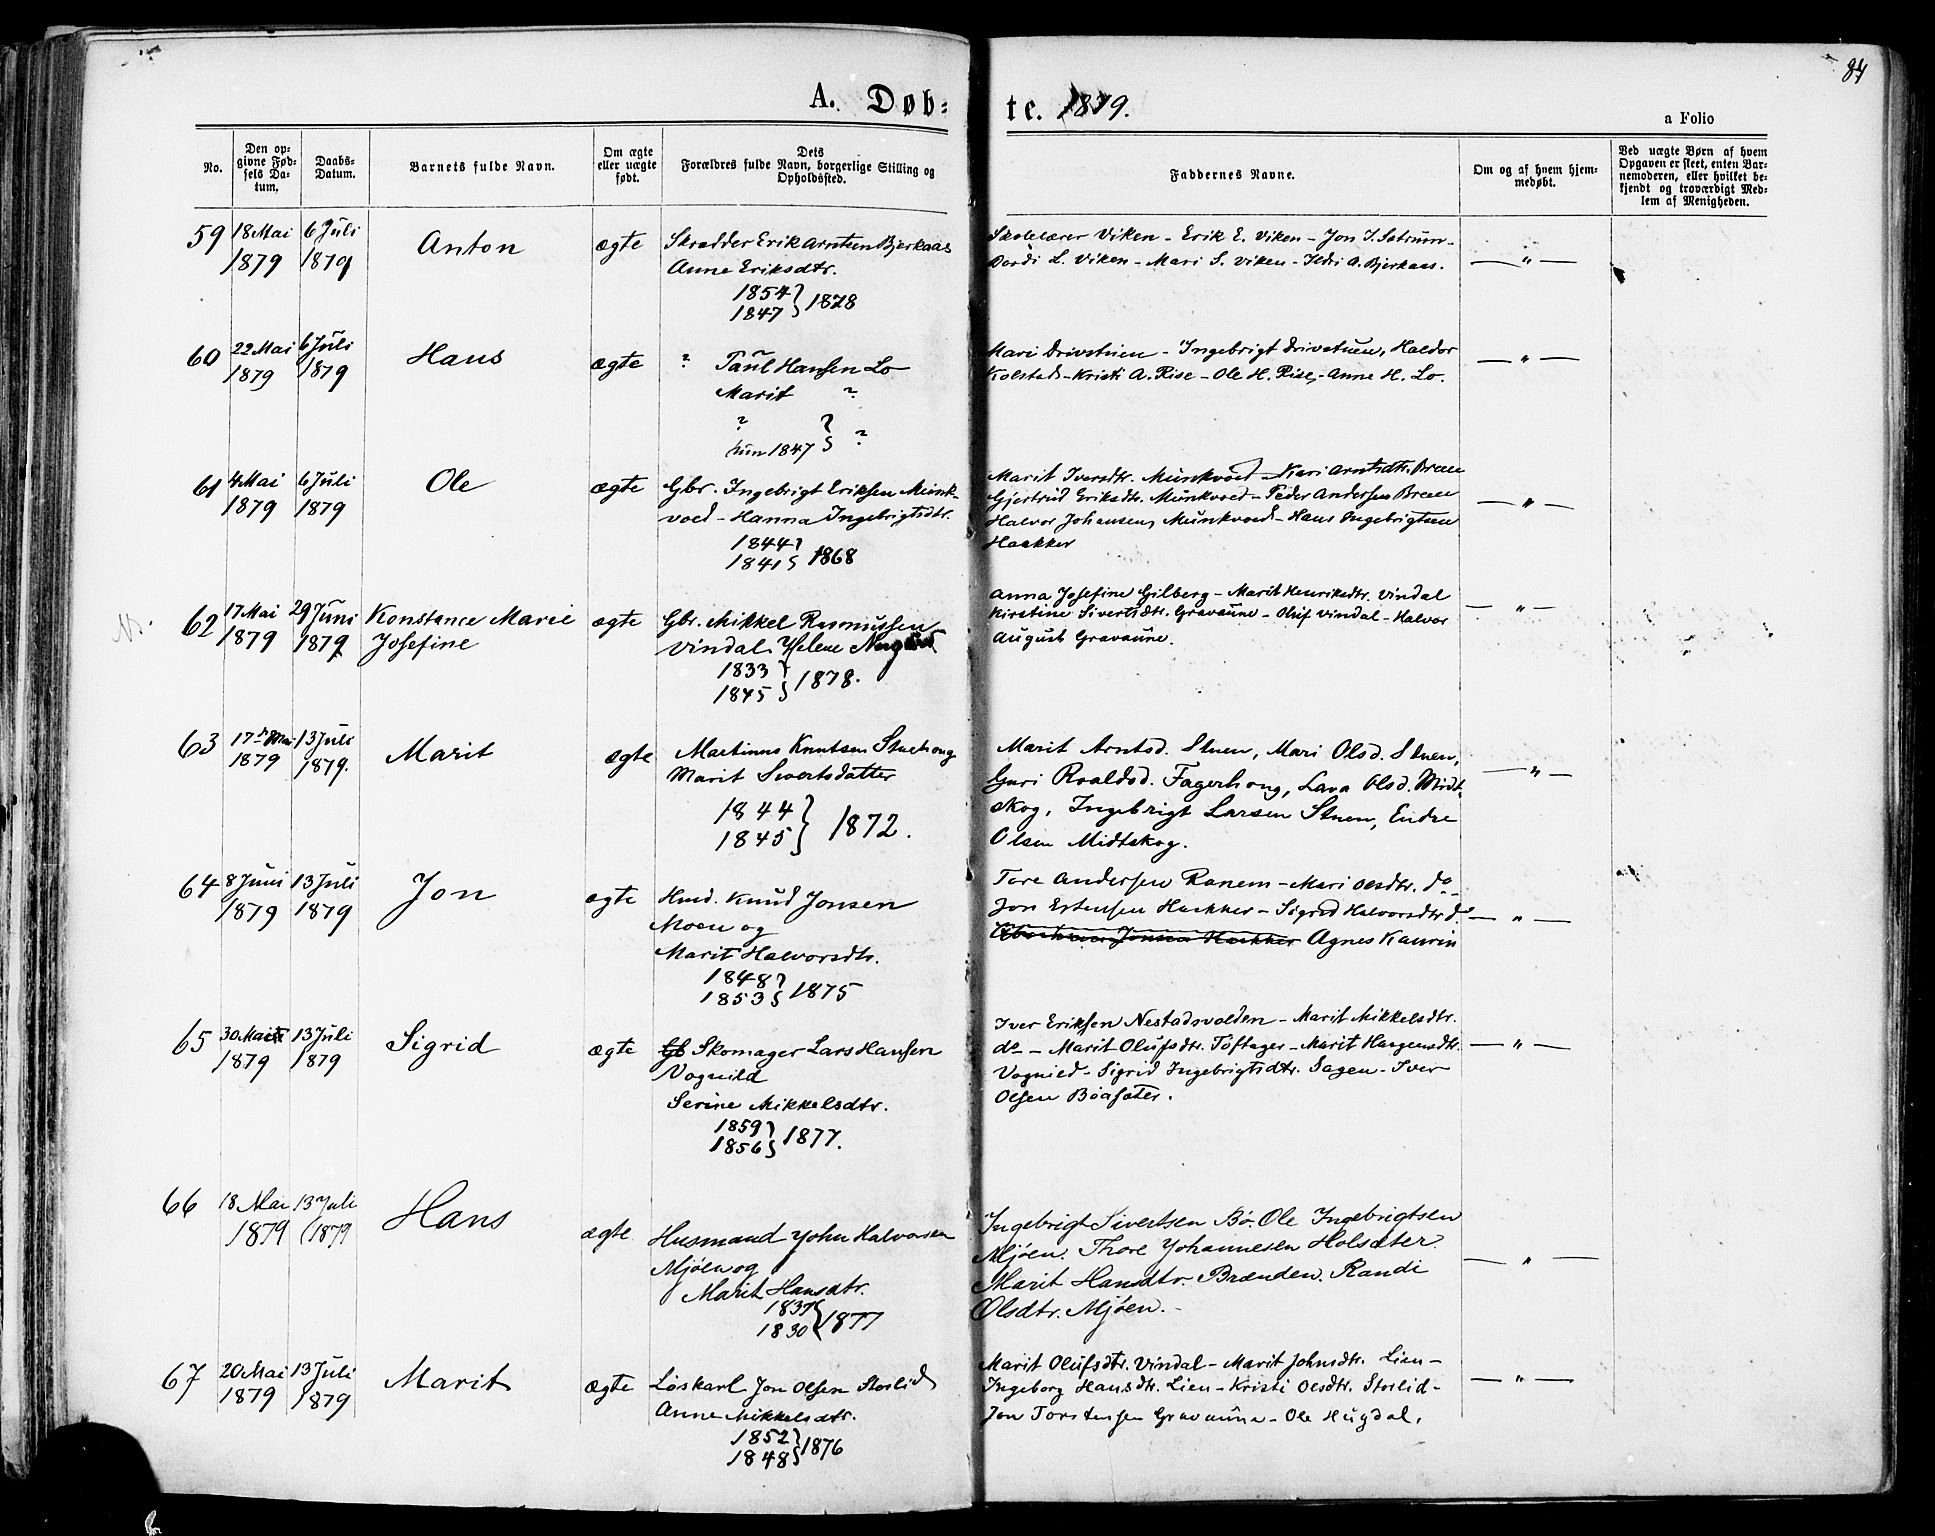 84
A. Døb-
te. 1879.
a Folio
No.
Den op-
givne Fød-
sels Da-
tum.
Daabs-
Datum.
Barnets fulde Navn.
Om ægte
eller uægte
født.
Dets
Forældres fulde Navn, borgerlige Stilling og
Opholdssted.
Faddernes Navne.
Om og af hvem hjem-
medøbt.
Ved uægte Børn af hvem
Opgaven er skeet, enten Bar-
nemoderen, eller hvilket be-
kjendt og troværdigt Med-
lem af Menigheden.
59
18 Mai
1879
6 Juli
1879
Anton
ægte
Skrædder Erik Arntsen Bjerkaas
Anne Eriksdtr.
1854
1847 } 1878
Skolelærer Viken - Erik E. Viken - Jon J. Sætrum -
Dordi L. Viken - Mari S. Viken - Ildri A. Bjerkaas.
— " —
60
22 Mai
1879
6 Juli
1879
Hans
ægte
? Paul Hansen Lo
Marit ?
? } ?
hun 1847
Mari Drivstuen - Ingebrigt Drivstuen, Haldor
Kolstad - Kristi A. Rise - Ole H. Rise, - Anne H. Lo.
— " —
61
4 Mai
1879
6 Juli
1879
Ole
ægte
Gbr. Ingebrigt Eriksen Munk-
voed - Hanna Ingebrigtsdtr.
1844
1841 } 1868
Marit Iversdtr. Munkvoed - Kari Arntsdtr. Bræe
Gjertrud Eriksdtr. Munkvoed - Peder Andersen Bræe
Halvor Johansen, Munkvoed - Hans Ingebrigtsen
Hækker
— " —
62
17 Mai
1879
29 Juni
1879
Konstance Marie
Josefine
ægte
Gbr. Mikkel Rasmussen
Vindal. Helene
1833
1845 } 1878.
Anna Josefine Gilberg - Marit Henriksdtr. Vindal
Kirstine Sivertsdtr. Gravaune - Oluf Vindal - Halvor
August Gravaune.
— " —
63
17de Mai
1879
13 Juli
1879.
Marit
ægte
Martinus Knutsen Stuehaug
Marit Sivertsdatter
1844
1845 } 1872.
Marit Arntsd. Stuen, Mari Olsd. Stuen,
Guri Roaldsd. Fagerhaug, Lava Olsd. Midt-
skog, Ingebrigt Larsen Stuen, Endre
Olsen Midtskog.
— " —
64
8 Juni
1879
13 Juli
1879
Jon
ægte
Hmd. Knud Jonsen
Moen og
Marit Halvorsdtr.
1848
1853 } 1875
Tore Andersen Ranem - Mari Olsdtr. do -
Jon Estensen Hækker - Sigrid Halvorsdtr do
Jonsen Hækker Agnes Kaurin
— " —
65
30 Mai
1879
13 Juli
1879
Sigrid
ægte
Gb Skomager Lars Hansen
Vognild
Serine Mikkelsdtr.
1859
1856 } 1877.
Iver Eriksen Nestadsvolden - Marit Mikkelsdtr.
do - Marit Olufsdtr. Toftager - Marit Haagensdtr.
Vognild - Sigrid Ingebrigtsdtr. Sagen - Iver
Olsen Bøasæter.
— " —
66
18 Mai
1879
13 Juli
1879
Hans
ægte
Husmand John Halvorsen
Mjøen og
Marit Hansdtr.
1837
1830 } 1877
Ingebrigt Sivertsen Bø. Ole Ingebrigtsen
Mjøen. Thore Johannesen Holsæter.
Marit Hansdtr. Brænden. Randi
Olsdtr. Mjøen. -
— " —
67
20 Mai
1879
13 Juli
1879
Marit
ægte
Løskarl Jon Olsen Storlid
Anne Mikkelsdtr.
1852
1848 } 1876
Marit Olufsdtr. Vindal - Marit Johnsdtr. Lien -
Ingeborg Hansdtr. Lien - Kristi Olsdtr. Storlid -
Jon Torstensen Gravaune - Ole Hugdal.
— " —